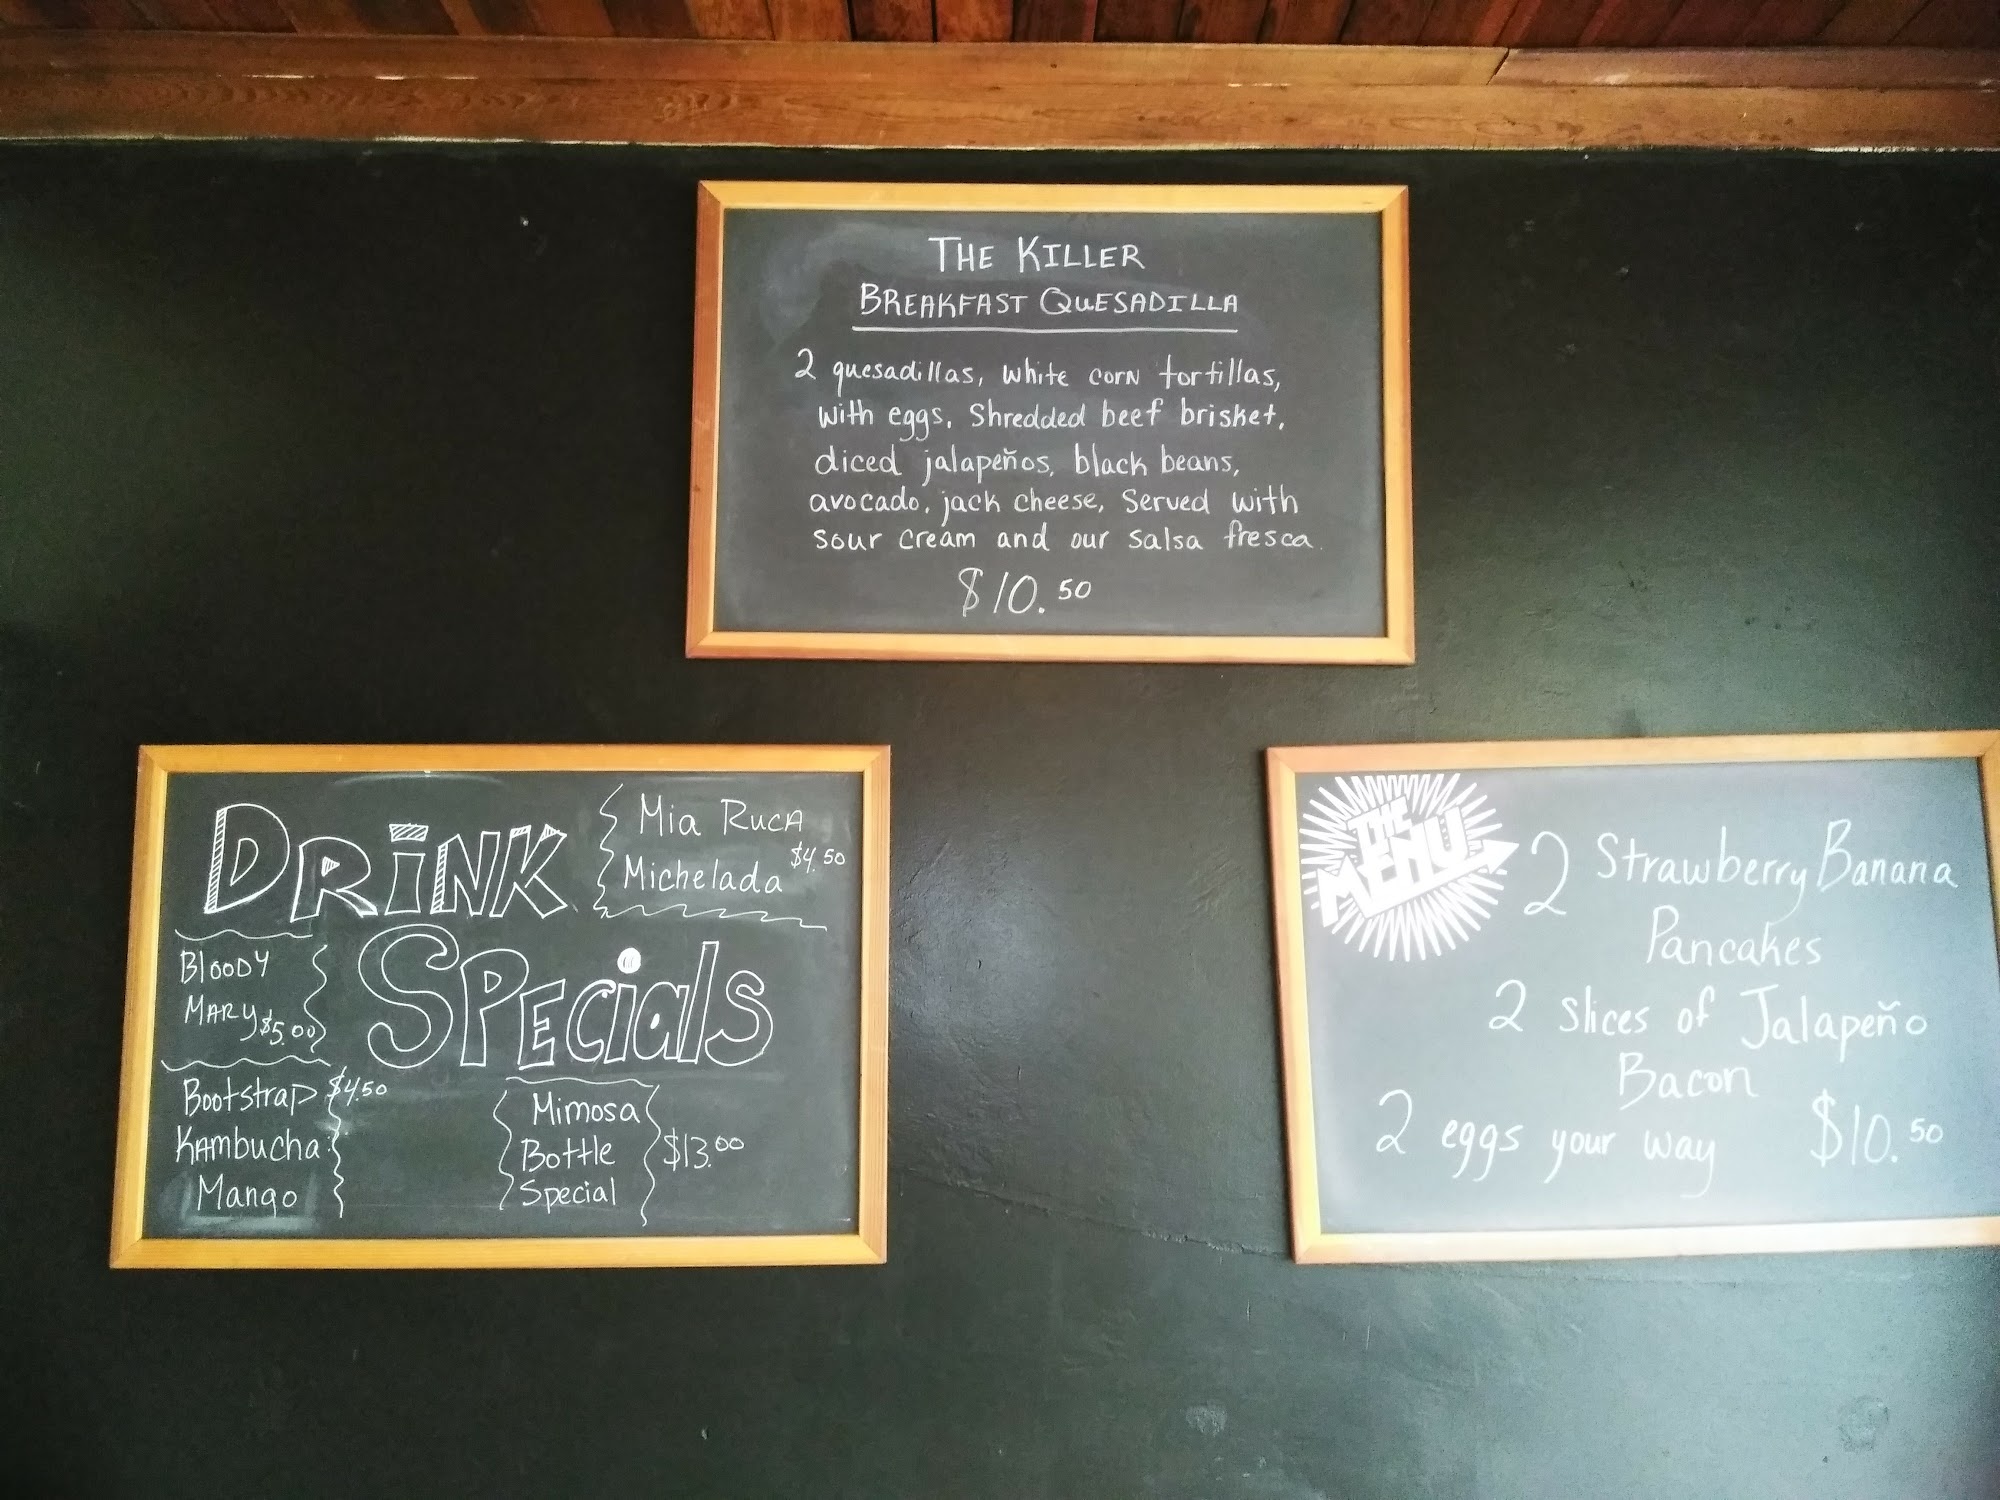 THE KILLER
BREAKFAST QUESADILLA
2 quesadillas, white corn tortillas,
with eggs, Shredded beef brisket,
diced jalapeños, black beans,
avocado, jack cheese, Served with
sour cream and our salsa fresca.
$10.50
DRINK
SPECIALS
Mia RUCA
Michelada $4.50
BLOODY
MARY $5.00
Bootstrap $4.50
Kambucha:
Mango
Mimosa
Bottle $13.00
Special
THE
MENU
2 Strawberry Banana
Pancakes
2 slices of Jalapeño
Bacon
2 eggs your way $10.50